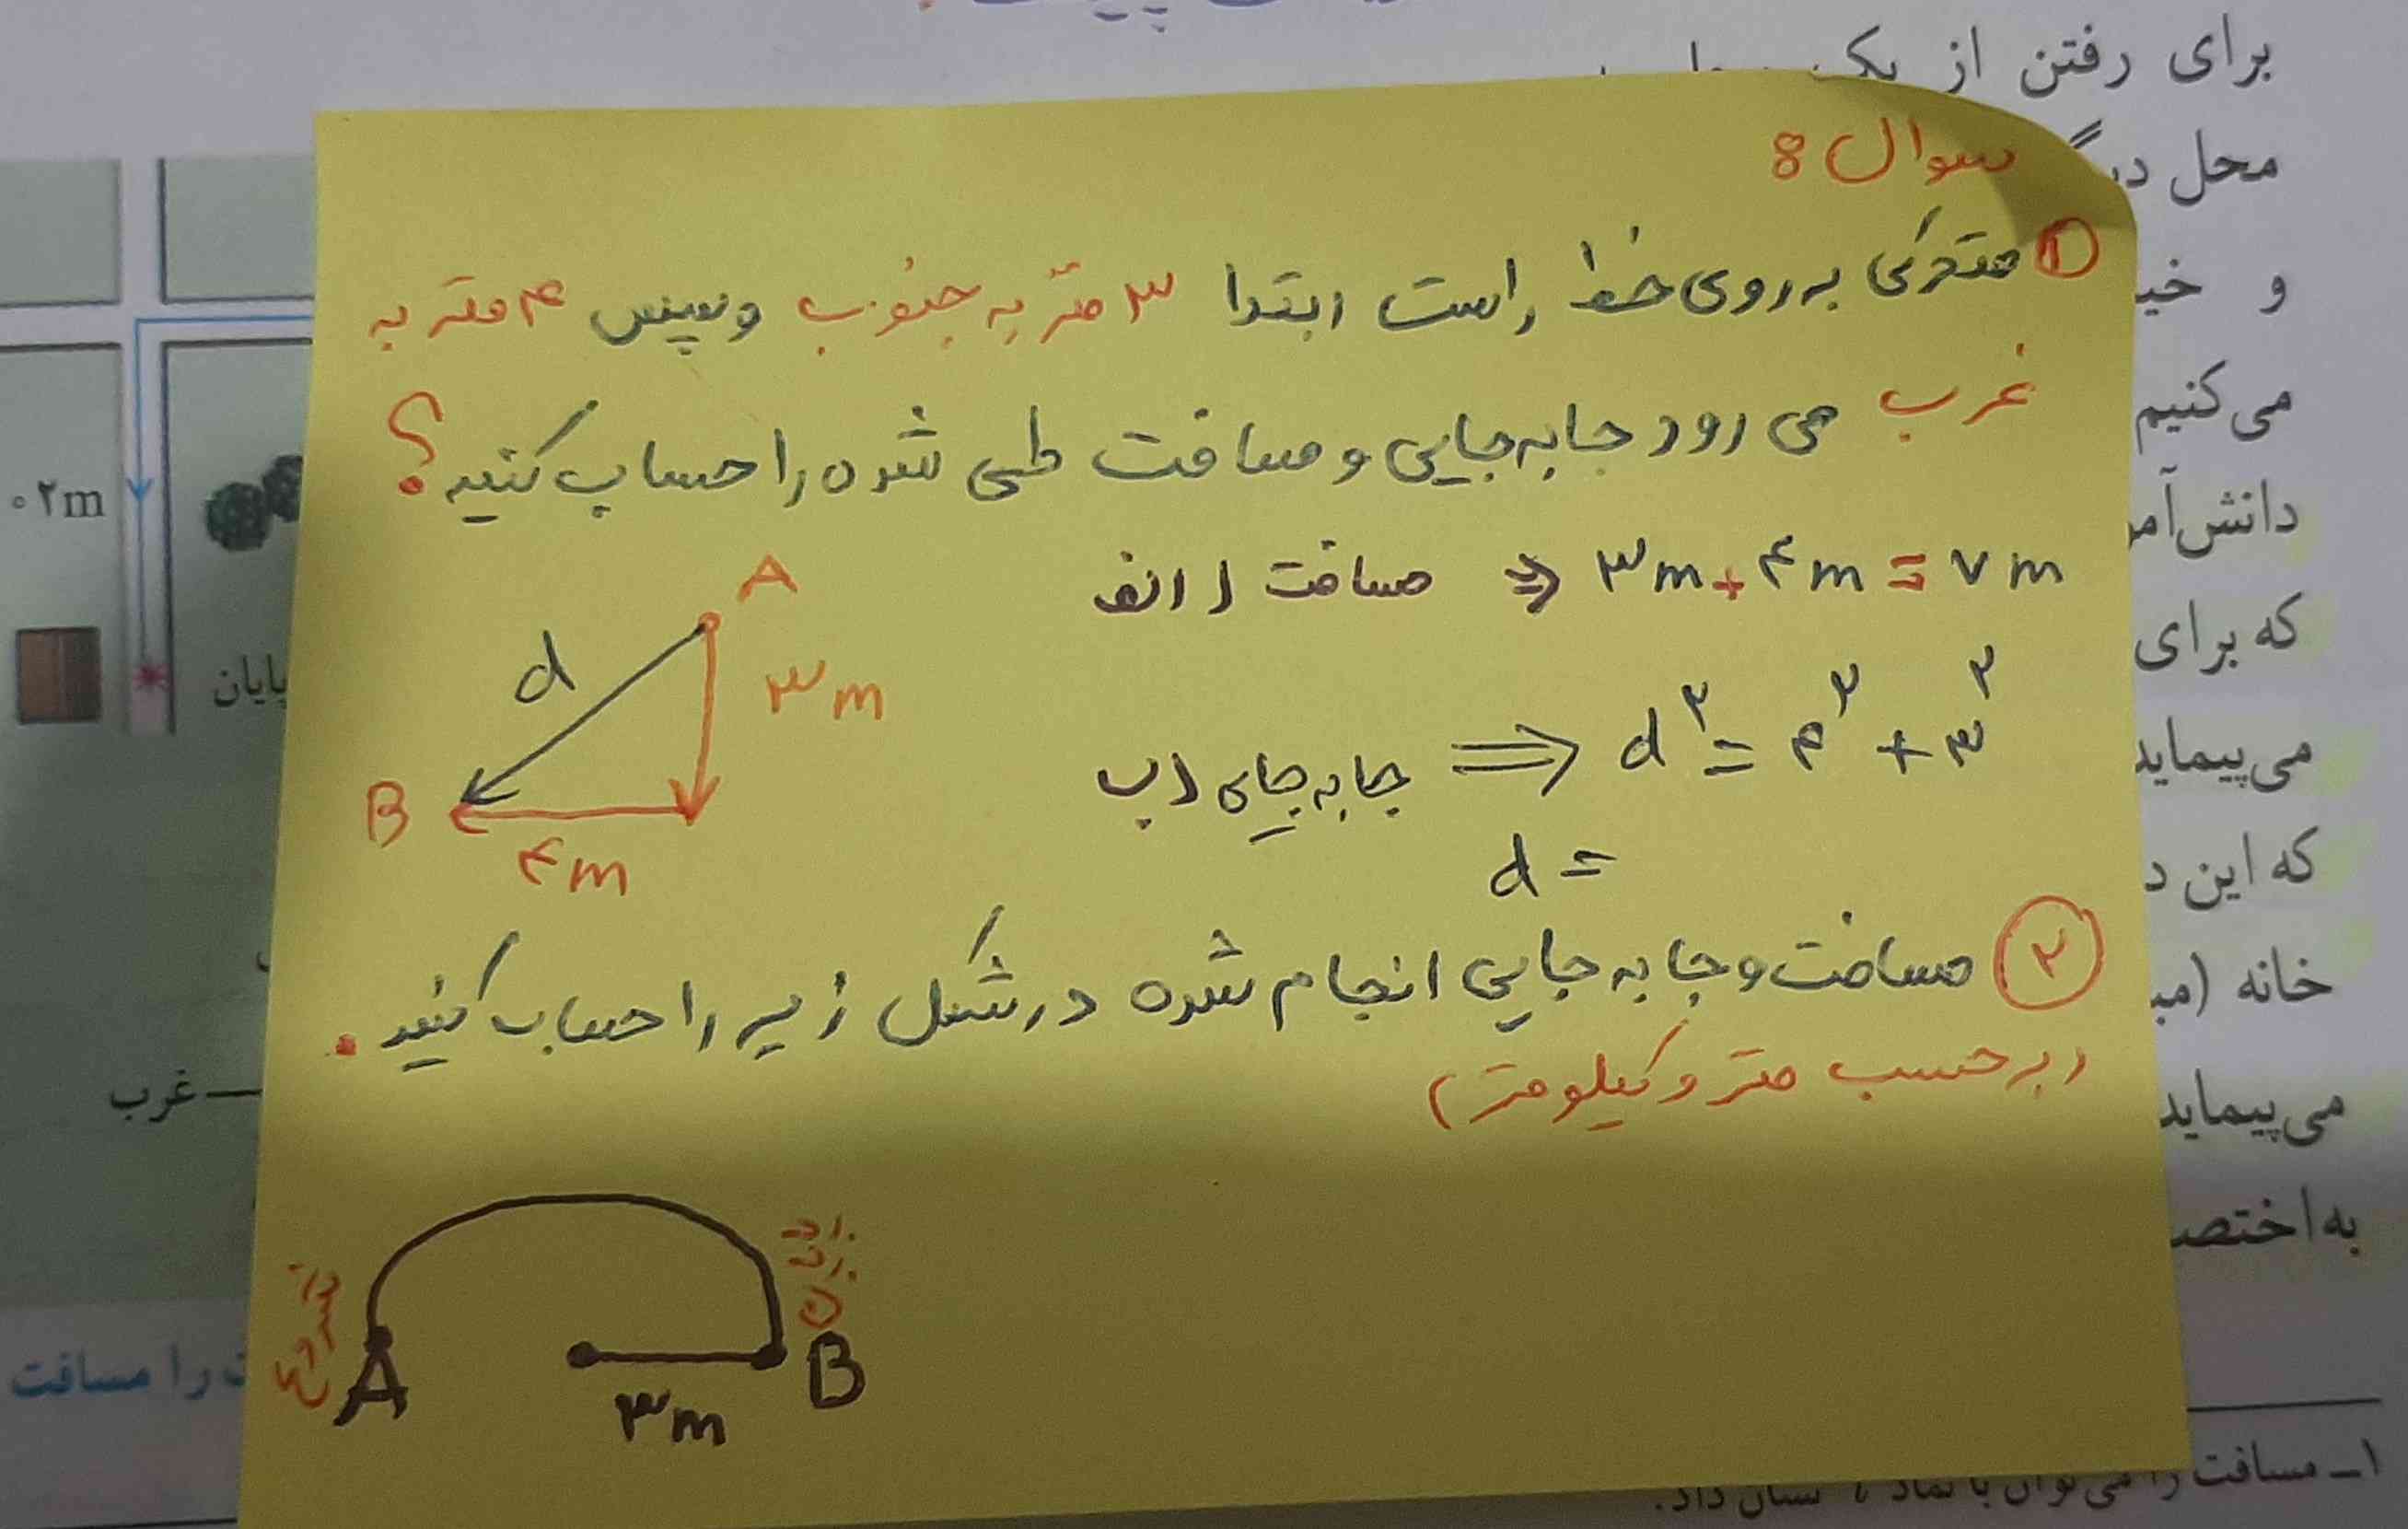 برای رفتن از یک
محل
و
می‌کنیم
دانش‌آمو
که برای
می‌پیماید
که این د
خانه (مب
می‌پیماید
به‌اختص
سوال 8
۱ متحرکی به روی خط راست ابتدا ۳ متر به جنوب و سپس ۴ متر به
غرب می رود جابه‌جایی و مسافت طی شده را حساب کنید؟
الف) مسافت ⇒ ۳m + ۴m = ۷m
ب) جابه‌جایی ⇒ d^۲ = ۴^۲ + ۳^۲
d =
A
d
۳m
B
۴m
۲ مسافت و جا به جایی انجام شده در شکل زیر را حساب کنید.
(برحسب متر و کیلومتر)
شروع
A
پایان
B
۳m
۰۲m
پایان
غرب
را مسافت
۱ــ مسافت را می‌توان با نماد ℓ نشان داد.